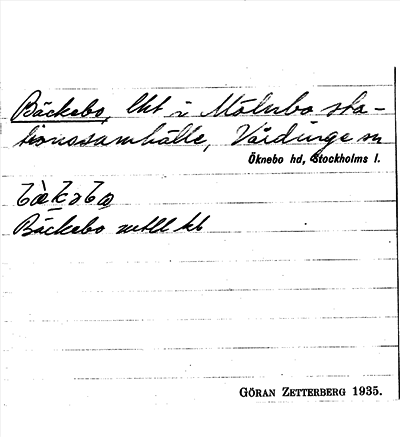 Bäckebo, lht i Mölnbo sta-
tionssamhälle, Vårdinge sn
Öknebo hd, Stockholms l.
Bäckebo
GÖRAN ZETTERBERG 1935.